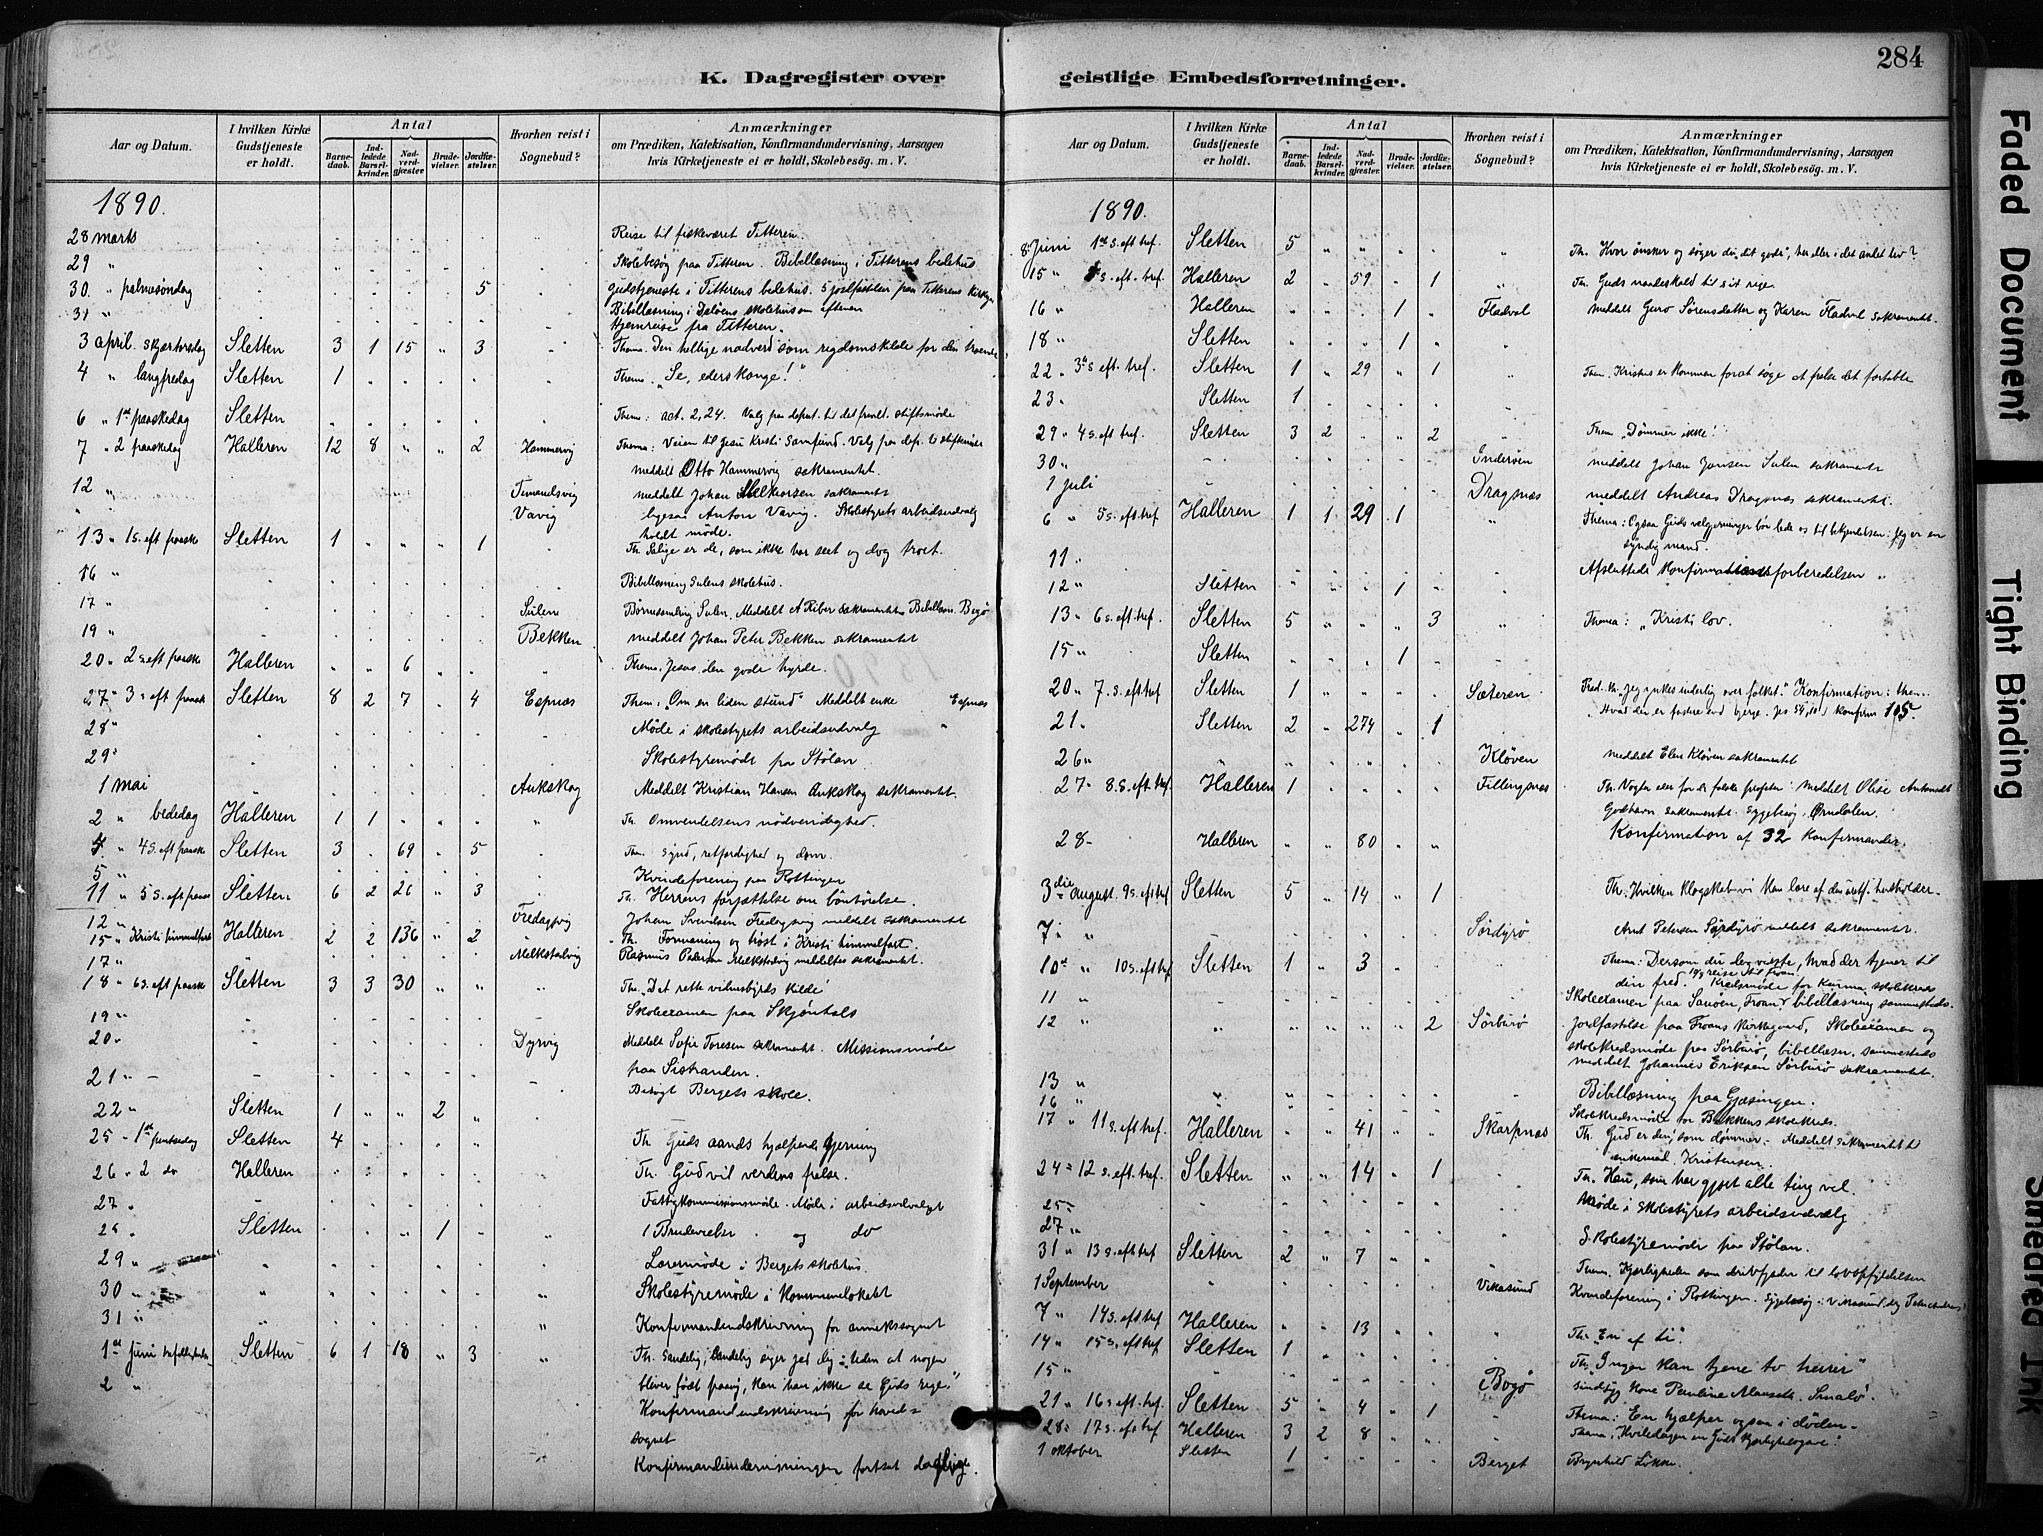 284
K. Dagregister over geistlige Embedsforretninger.
Aar og Datum.
I hvilken Kirke Gudstjeneste er holdt.
Antal
Barnedaab.
Indledede Barselkvinder.
Nadverdgjæster.
Brudevielser.
Jordfæstelser.
Hvorhen reist i Sognebud?
Anmærkninger
om Prædiken, Katekisation, Konfirmandundervisning, Aarsagen
hvis Kirketjeneste ei er holdt, Skolebesøg. m. V.
1890.
28 marts Reise til fiskeværet Titteren.
29 " Skolebesøg paa Titteren. Bibellæsning i Titterens bedehus
30. " palmesøndag 5 gudstjeneste i Titterens bedehus. 5 jordfæstelser paa Titterens kirkeg.
31 " Bibellæsning i skolehus om eftmen
Hjemreise fra Titteren.
3 april. skjærtorsdag Sletten 3 1 15 " 3 Thema: Den hellige nadverd som rigdomskilde for den troende
4 " langfredag Sletten 1 Thema: "Se, eders konge!"
6 " 1st paaskedag Sletten Thema: act. 2,24. Valg paa deput. til det frivil. stiftsmøde
7 " 2 paaskedag Halleren 12 8 " " 2 Hammervig Thema: Veien til Jesu Kristi Samfund. Valg paa dep. til stiftsmøde
meddelt Otto Hammervig sakramentet.
12 " meddelt Johan sakrament
Vavig ligesaa Anton Vavig. Skolestyrets arbeidsudvalg
holdt møde.
13 " 1 s. eft paaske Sletten 1 " " " 1 Th. Salige er de, som ikke har seet og dog troet.
16 " Bibellæsning Sulens skolehus.
17 " Sulen Børnesamling Sulen. Meddelt A Riber sakramentet Bibellæsn. Bogø
19 " Bekken meddelt Johan Peter Bekken sakramentet
20 " 2 s. eft paaske Halleren " " 6 Thema: Jesus, den gode hyrde.
27 " 3 s. eft paaske Sletten 8 2 7 " 4 Espnæs Them: "Om en liden stund" Meddelt enke Espnæs
28 " Møde i skolestyrets arbeidsudvalg
29 " Skolestyremøde paa Stølan.
1 mai Aukskog Meddelt Kristian Hansen Aukskog sakramentet.
2 " bededag Halleren 1 1 Th. Omvendelsens nødvendighed.
4 " 4 s. eft paaske Sletten 3 . 69 " 5 Them. synd, retfærdighed og dom.
5 " Kvindeforening paa Rottingen
11 " 5 s. eft paaske Sletten 6 2 26 " 3 Th. Herrens forjættelse om bønhørelse.
12 " Fredagsvig Johan Svendsen Fredagsvig meddelt sakramentet
15 " Kristi himmelfart Halleren 2 2 136 " 2 Th. Formaning og trøst i Kristi himmelfart.
17 " Melkstadvig Rasmus Pedersen Melkstadvig meddeltes sakramentet.
18 " 6 s. eft paaske Sletten 3 3 30 " " Th. "Det rette vidnesbyrds kilde"
19 " Skoleexamen paa Skjøntals
20 " Dyrvig Meddelt Sofie Toresen sakrament. Missionsmøde
paa Sistranden.
21 " Besøgt Bergets skole.
22 " Sletten 1 " " 2 "
25 " 1st pintsedag Sletten 4 Th. Guds aands hjælpende gjerning
26 " 2 do Halleren Th. Gud vil verdens frelse.
27 " Fattigkommissionsmøde. Møde i arbeidsudvalget
28 " Sletten 1 1 Brudevielse og do
29 " Læremøde i Bergets skolehus.
30 " Skolestyremøde i Kommunelokalet
31 " Konfirmandindskrivning for annekssognet
1st Juni Sletten 6 1 18 " 3 Th. Sandelig, sandelig siger jeg dig: Uden at nogen
2 " bliver født paany, kan han ikke se Guds rige."
Konfirmandindskrivning for hoved=
sognet
Konfirmandundervisningen fortsat daglige
1890.
8 Juni 1st s. eft tref. Sletten 5 " " " Th. Hvor ønsker og søger du dit gode, her eller i det andet liv?
15 " 2 s. eft. tref. Halleren 2 " 59 " 1 Th. Guds naadeskald til sit rige.
16 " Halleren 1 Fladval meddelt Guro Sørensdatter og Karen Fladval sakramentet.
18 " Sletten 1
22 " 3de s. eft. tref. Sletten 1 " 29 " 1 Them. Kristus er kommen forat søge at frelse det fortabte
23 " Sletten 1
29 " 4 s. eft tref. Sletten 3 2 " " 2 Them "Dømmer ikke!"
30 " Inderøen meddelt Johan Jansen Sulen sakramentet
1 juli Dragsnæs meddelt Andreas Dragsnæs sakramentet.
6 " 5 s. eft tref. Halleren 1 1 29 1 Thema: Ogsaa Guds velgjerninger bør lede os til bekjendelsen: Jeg er en
syndig mand.
11 " Afsluttede konfirmationsforberedelsen
12 " Sletten 1
13 " 6 s. eft. tref. Sletten 5 " " " 3 Thema: "Kristi lov.
15 " Sletten 1
20 " 7. s. eft tref Sletten 1 Sæteren Præd. th. "Jeg ynkes inderlig over folket." Konfirmation: them.
21 " Sletten 2 " 274 " 1 "Hvad der er fastere end bjerge. Jes 54,10. Konfirm 105.
26 " Kløven meddelt Elen Kløven sakramentet
27 " 8. s. eft. tref. Halleren 1 Fillingsnæs Th. Vogter eder for de falske profeter. meddelt Olise Antonsdt
Godhavn sakramentet. Sygebesøg: Ørndalen.
28 " Halleren " " 80 " " Konfirmation af 32 konfirmander.
3die august. 9 s. eft tref Sletten 5 " 14 " 1 Th. Hvilken klogskab vi kan lære af den uretf. husholder.
7 " Sørdyrø Arnt Petersen Sørdyrø meddelt sakramentet.
10de " 10 s. eft tref Sletten 1 " 3 Thema: Dersom du dog vidste, hvad der tjener til
din fred. reise til Froan. Kredsmøde for Kunna skolekreds
11 " Skoleexamen paa Sauøen, Froan. bibellæsning sammesteds.
12 " 2 Sørburø Jordfæstelse paa Froans kirkegaard, Skoleexamen og
skolekredsmøde paa Sørburø, bibellæsn. sammesteds
meddelt Johannes Eriksen Sørburø sakramentet.
13 " Bibellæsning paa Gjæsingen.
16 " Skolekredsmøde for Bekkens skolekreds.
17 " 11 s. eft. tref. Halleren " " 41 Skarpnæs Th. Gud er den, som dømmer. Meddelt sakramentet til
enkemad. Kristensen.
24 " 12 s. eft. tref. Sletten " " 14 " 1 Th. Han, som har gjort alle ting vel.
25 " Møde i skolestyrets arbeidsudvalg
27 " Skolestyremøde paa Stølan.
31 " 13 s. eft tref Sletten 2 " 7 Thema. Kjærligheden som drivfjeder til lovopfyldelsen
1 September Vikasund Kvindeforening i Rottingen. Sygebesøg i Vikasund.
7 " 14 s. eft tref Halleren 13 Th. "En af ti".
14 " 15 s. eft tref Sletten 1 Th. Ingen kan tjene to herrer"
15 " Bogø sindssyg kone Pauline Smalø.
21 " 16 s. eft. tref. Sletten 5 " 4 " 1 Thema: En hjælper ogsaa i døden.
28 " 17 s. eft tref Halleren 3 2 8 Thema: "Hviledagen en Guds kjærlighedsgave!
1 oktober Sletten 1 Berget Brynhild Løkke.
Faded Document
Tight Binding
Smeared Ink